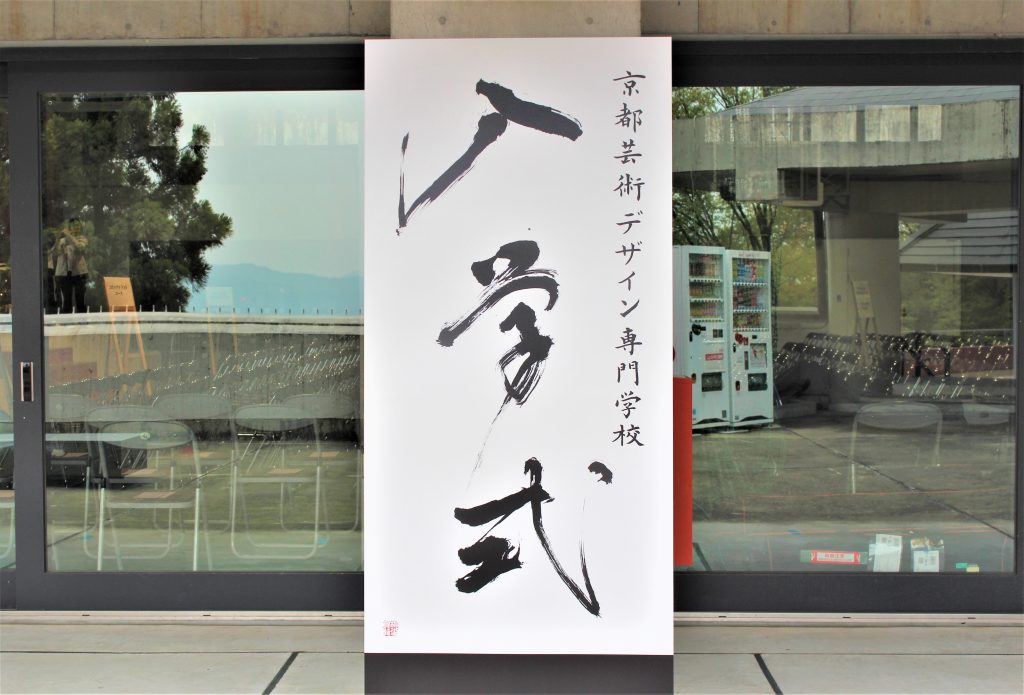 京都芸術デザイン専門学校
入学式